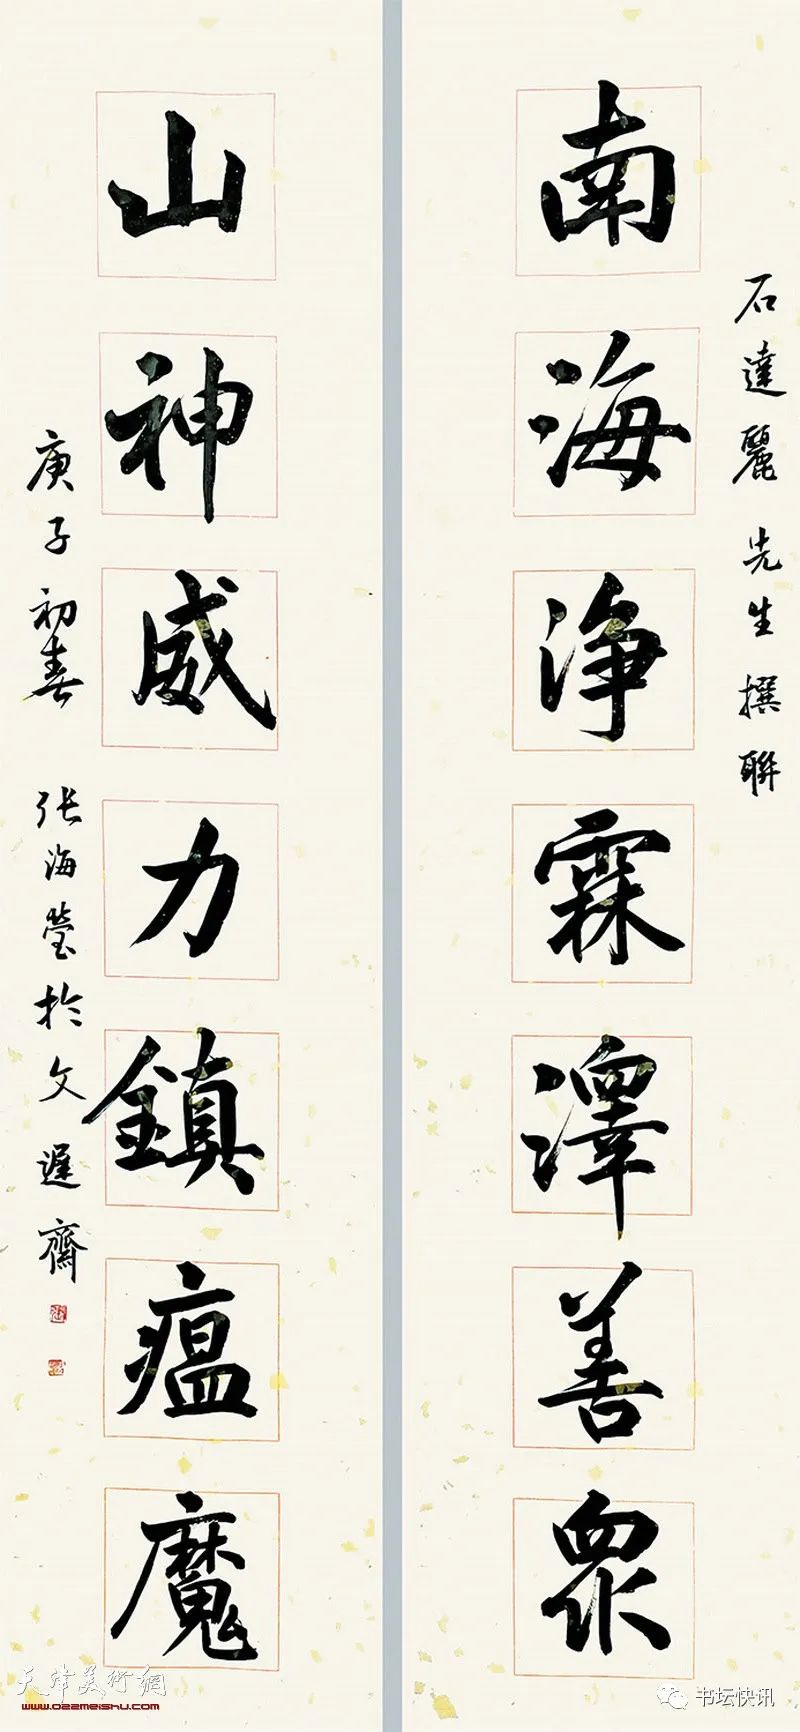 石達麗先生撰聯
南海浄霖澤善眾
山神威力鎮瘟魔
庚子初春 张海瑩於文遲齋
天津美術網
www.022meishu.com
书坛快讯